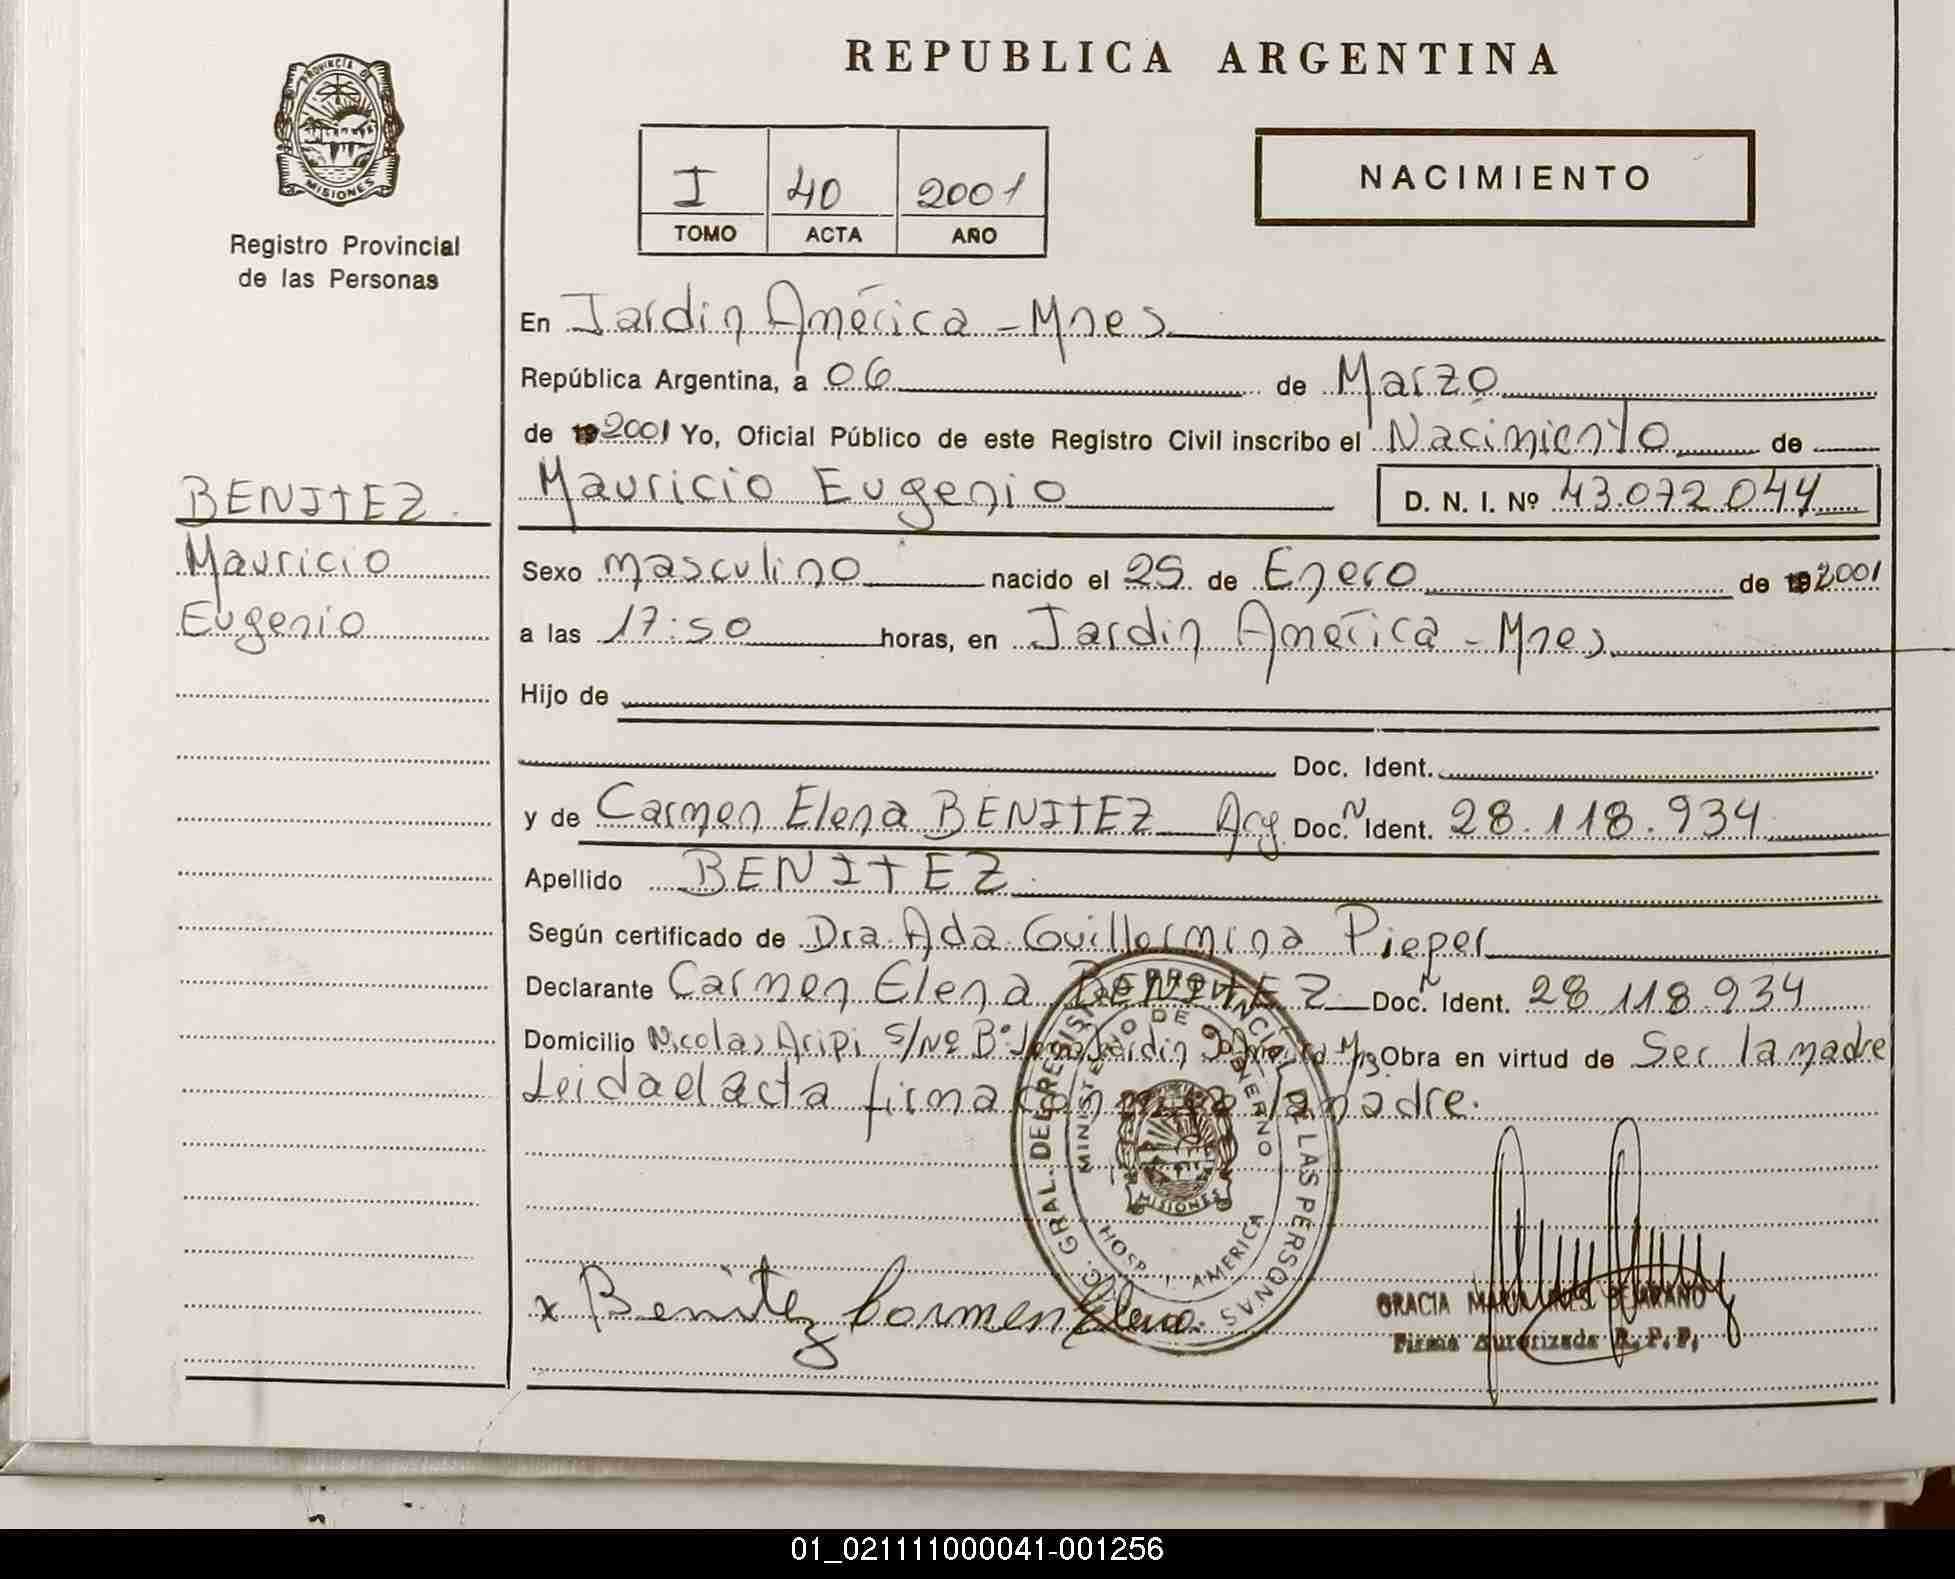 REPUBLICA ARGENTINA
PROVINCIA DE
MISIONES
Registro Provincial
de las Personas
I 40 2001
TOMO ACTA AÑO
NACIMIENTO
En Jardin América - Mnes
República Argentina, a 06 de Marzo
de 19 2001 Yo, Oficial Público de este Registro Civil inscribo el Nacimiento de
BENITEZ
Mauricio
Eugenio
Mauricio Eugenio D. N. I. Nº 43.072.044
Sexo masculino nacido el 25 de Enero de 19 2001
a las 17:50 horas, en Jardin América - Mnes
Hijo de
Doc. Ident.
y de Carmen Elena BENITEZ Arg Doc. N Ident. 28.118.934
Apellido BENITEZ
Según certificado de Dra. Ada Guillermina Pieper
Declarante Carmen Elena BENITEZ Doc. N Ident. 28.118.934
Domicilio Nicolas Aripi S/Nº Bº Jardin América Mnes Obra en virtud de Ser la madre
Leida el acta firma conmigo la madre.
GRAL. DEL REGISTRO PROVINCIAL DE LAS PERSONAS
MINISTERIO DE GOBIERNO
MISIONES
HOSP. J. AMERICA
x Benitez Carmen Elena.
GRACIA MARIA INES BEJARANO
Firma Autorizada R.P.P.
01_021111000041-001256